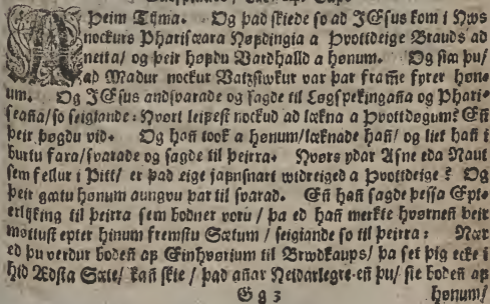 A Þeim Tijma. Og það skiede so ad JEsus kom i Hws
nockurs Phariseara Høpdingia a Þvottdeige Brauds ad
neita/ og þeir høpdu Vardhalld a hønum. Og siæ þu/
ad Madur nockur Vatzsiwkur var þar framme fyrer høn-
um. Og JEsus andsvarade og sagde til Løgspekingaña og Phari-
seaña/ so seigiande: Hvort leipest nockud ad lækna a Þvottdøgum? Eñ
þeir þøgdu vid. Og hañ took a hønum/ læknade hañ/ og liet hañ i
burtu fara/ svarade og sagde til þeirra. Hvørs ydar Asne eda Naut
sem fellur i Pitt/ er þad eige japnsnart widreiged a Þvottdeige? Og
þeir gætu hønum aungvu þar til svarad. Eñ hañ sagde þessa Ept-
erlijking til þeirra sem bodner voru/ þa ed hañ merkte hvørneñ þeir
møttust epter hinum fremstu Sætum/ seigiande so til þeirra: Nær
ed þu verdur bodeñ ap Einhvørium til Brwdkaups/ þa set þig ecke i
hid Ædsta Sæte/ kañ skie/ þad añar Heidarlegre eñ þu/ sie bodeñ ap
G g 3 hønum/